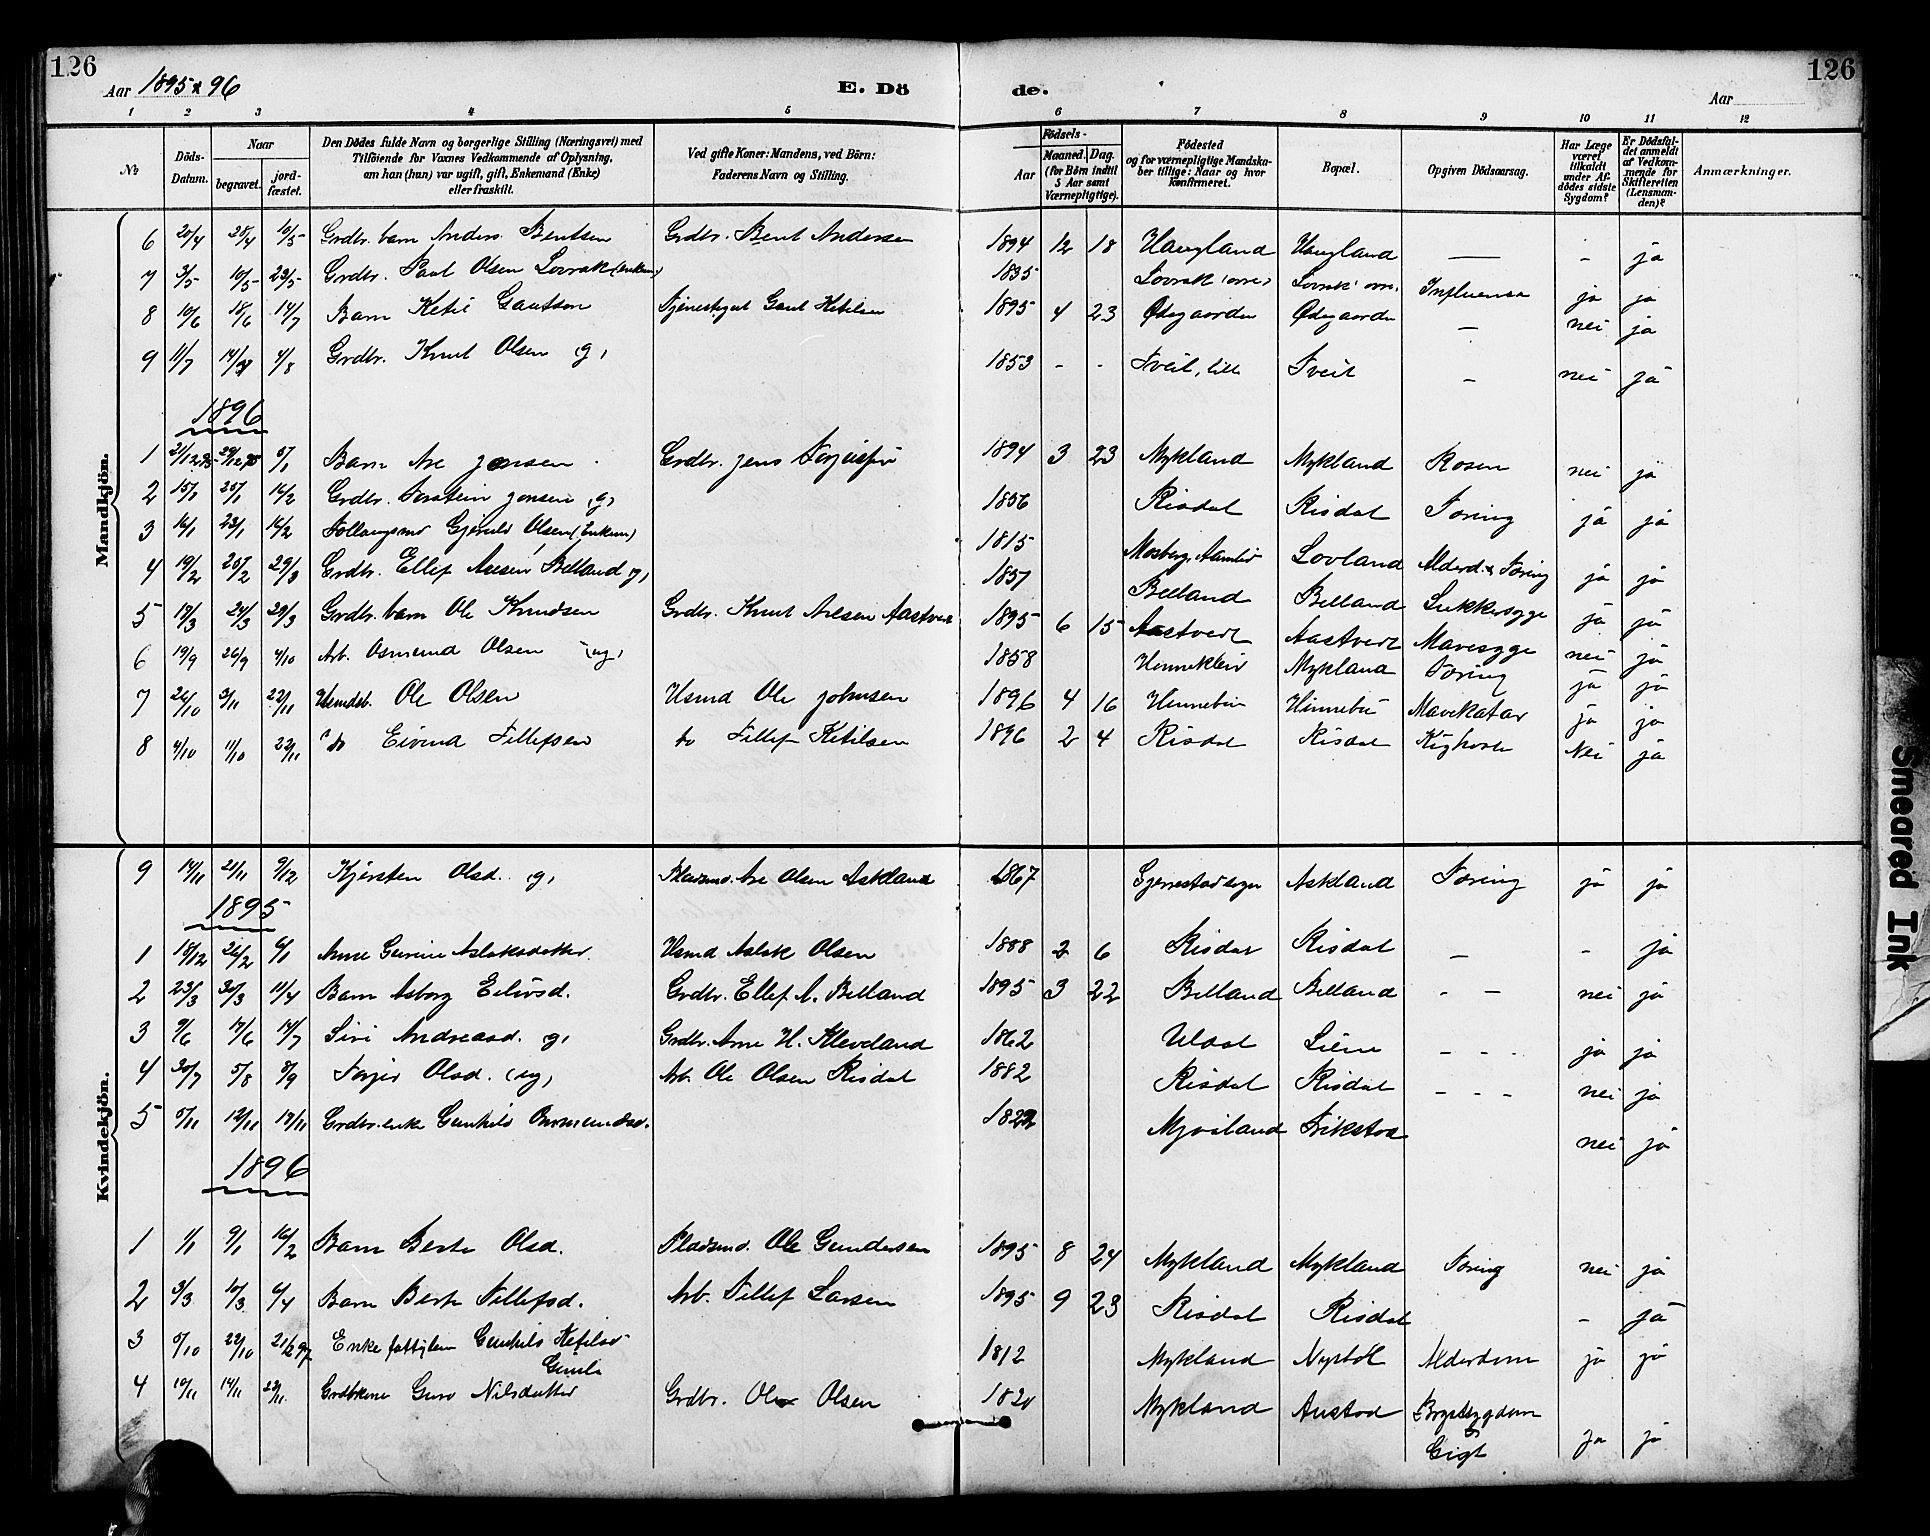 126
126
Aar 1895 & 96
E. Dö de.
Aar
1 2 3 4 5 6 7 8 9 10 11 12
No
Döds-Datum.
Naar begravet. jord-fæstet.
Den Dödes fulde Navn og borgerlige Stilling (Næringsvei) med Tilföiende for Voxnes Vedkommende af Oplysning, om han (hun) var ugift, gift, Enkemand (Enke) eller fraskilt.
Ved gifte Koner: Mandens, ved Börn: Faderens Navn og Stilling.
Födsels-
Aar Maaned. Dag. (for Börn indtil 5 Aar samt Værnepligtige).
Födested og for værnepligtige Mandskaber tillige: Naar og hvor konfirmeret.
Bopæl.
Opgiven Dödsaarsag.
Har Læge været tilkaldt under Afdödes sidste Sygdom?
Er Dödsfaldet anmeldt af Vedkommende for Skifteretten (Lensmanden)?
Anmærkninger.
Mandkjön.
6 20/4 28/4 10/5 Grdbr. barn Anders Bentsen Grdbr. Bent Andersen 1894 12 18 Haugland Haugland — - ja
7 3/5 10/5 23/5 Grdbr. Paul Olsen Lovrak (enkem) 1835 Lovrak Lovrak Influensa ja ja
8 10/6 18/6 14/7 Barn Ketil Gautson Gaut Ketilsen 1895 4 23 Ødegaarden Ødegaarden — nei ja
9 11/7 14/7 4/8 Grdbr. Knut Olsen (g) 1853 - - Tveit, lille Tveit — nei ja
1896
1 21/12 95 29/12 95 5/1 Barn Are Jensen Grdbr. Jens 1894 3 23 Mykland Mykland Rosen nei ja
2 15/1 25/1 16/2 Grdbr. Torstein Jonsen (g) 1856 Risdal Risdal Tæring ja ja
3 16/1 23/1 16/2 Gjeruld Olsen (Enkem) 1815 Lovland Alderd. & Tæring ja ja
4 19/2 25/2 29/3 Grdbr. Ellef Aresen Belland g, 1857 Belland Belland Sukkersyge ja ja
5 17/3 24/3 29/3 Grdbr. barn Ole Knudsen Grdbr. Knut Aresen Aastvedt 1895 6 15 Aastvedt Aastvedt Mavesyge nei ja
6 19/9 26/9 4/10 Arb. Osmund Olsen (ug) 1858 Mykland Tæring ja ja
7 26/10 3/11 22/11 Husmdsb. Ole Olsen Husmd Ole Johnsen 1896 4 16 Hinnebu Hinnebu Mavekatar ja ja
8 4/10 11/10 22/11 do Eivind Tellefsen do Tellef Ketilsen 1896 2 4 Risdal Risdal Kighoste Nei ja
Kvindekjön.
9 14/11 21/11 9/12 Kjersten Olsd. (g) Pladsmd. Are Olsen Askland 1867 Gjerrestad sogn Askland Tæring ja ja
1895
1 18/12 26/2 6/1 Anne Gurine Aslaksdatter Husmd Aslak Olsen 1888 2 6 Risdal Risdal — - ja
2 23/3 30/3 11/4 Barn Asborg Eilevsd. Grdbr. Ellef A. Belland 1895 3 22 Belland Belland - — nei ja
3 9/6 17/6 14/7 Siri Andreasd. g, Grdbr. Arne H. Kleveland 1862 Uldal - - - ja ja
4 30/7 5/8 8/9 Olsd. (ug) Arb. Ole Olsen Risdal 1882 Risdal Risdal - - - nei ja
5 5/11 12/11 17/11 Grdbr. enke Gunhild 1822 Mjoiland nei ja
1896
1 1/1 9/1 16/2 Barn Berte Olsd. Pladsmd. Ole Gundersen 1895 8 24 Mykland Mykland Tæring nei ja
2 3/3 10/3 6/4 Barn Berte Tellefsd. Arb. Tellef Larsen 1895 9 23 Risdal Risdal - ja
3 5/10 22/10 21/2 97 Enke fattiglem Gunhild Ketilsd 1812 Mykland Nystöl Alderdom ja ja
4 10/11 14/11 22/11 Grdbrkone Guro Nilsdatter Grdbr. Ole Olsen 1820 Mykland Austad Brystsygdom
& Gigt ja ja
Smeared Ink